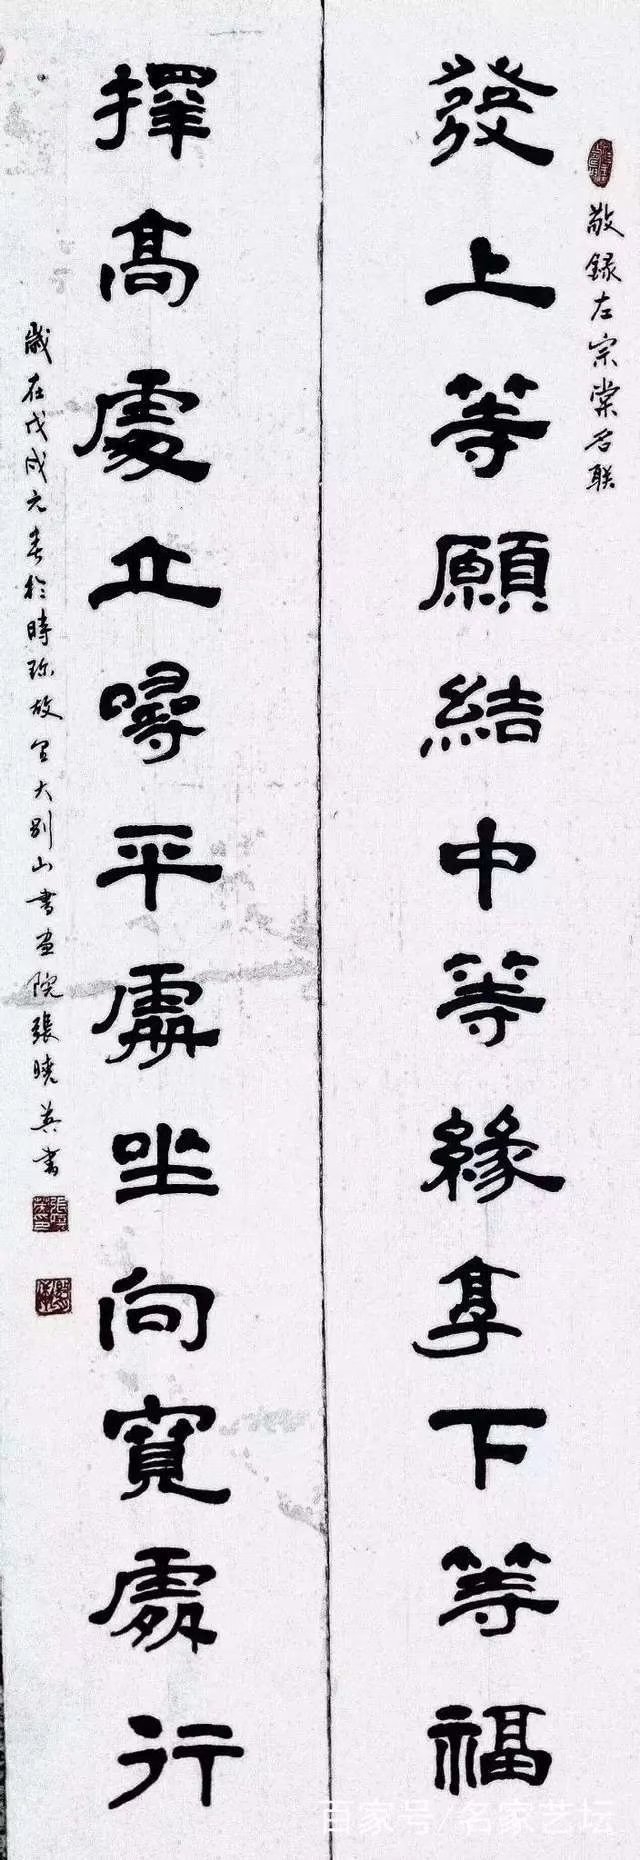 敬録左宗棠名联
發上等願結中等緣享下等福
擇高處立噚平處坐向寬處行
歲在戊戌元春於時珍故里大別山書画院張曉英書
百家号/名家艺坛